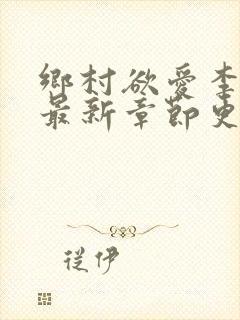 鄉村欲愛李
最新章節史
從伊